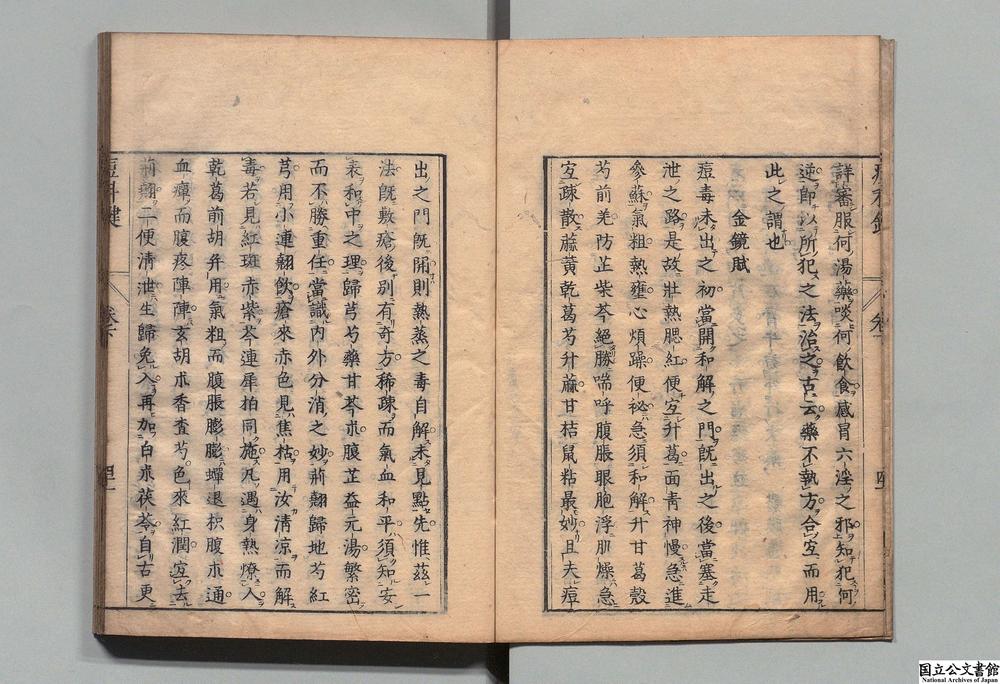 詳審服何湯藥啖何飲食感冒六淫之邪知犯何
逆即以所犯之法治之古云藥不執方合宜而用
此之謂也
金鏡賦
痘毒未出之初當開和解之門既出之後當塞走
泄之路是故壯熱腮紅便宜升葛面青神慢急進
參蘇氣粗熱壅心煩躁便祕急須和解升甘葛殼
芍前羌防芷柴芩絕勝喘呼腹脹眼胞浮肌燥急
宜疎散蘇黃乾葛芍升蘇甘桔鼠粘最妙且夫痘
出之門既開則熱蒸之毒自解未見點先惟茲一
法既敷瘡後別有奇方稀疎而氣血和平須知安
表和中之理歸芎芍藥甘芩朮腹芷益元湯繁密
而不勝重任當識内外分消之妙荊翹歸地芍紅
芎用小連翹飲瘡來赤色見焦枯用汝清涼而解
毒若見紅斑赤紫芩連犀拍同施凡遇身熱燎入
乾葛前胡幷用氣粗而腹脹膨膨蟬退枳腹朮通
血瘴而腹疼陣陣玄胡朮香查芍色來紅潤宜去
荊翹二便清泄生歸免入再加白朮茯苓自古更
痘科鍵
卷下
国立公文書館
National Archives of Japan